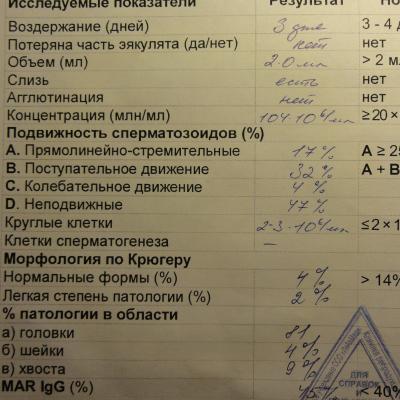 Исследуемые показатели Результат Но
Воздержание (дней) 3 дня 3 - 4 д
Потеряна часть эякулята (да/нет) нет нет
Объем (мл) 2.0 мл > 2 м
Слизь есть нет
Агглютинация нет нет
Концентрация (млн/мл) 104·10⁶/мл ≥20 ×
Подвижность сперматозоидов (%)
A. Прямолинейно-стремительные 17% A ≥ 25
B. Поступательное движение 32% A + B
C. Колебательное движение 4%
D. Неподвижные 47%
Круглые клетки 2-3·10⁶/мл ≤2 × 1
Клетки сперматогенеза –
Морфология по Крюгеру
Нормальные формы (%) 4% > 14%
Легкая степень патологии (%) 2%
% патологии в области
а) головки 81
б) шейки 4%
в) хвоста 9%
MAR IgG (%) < 40%
ДЛЯ
СПРАВОК